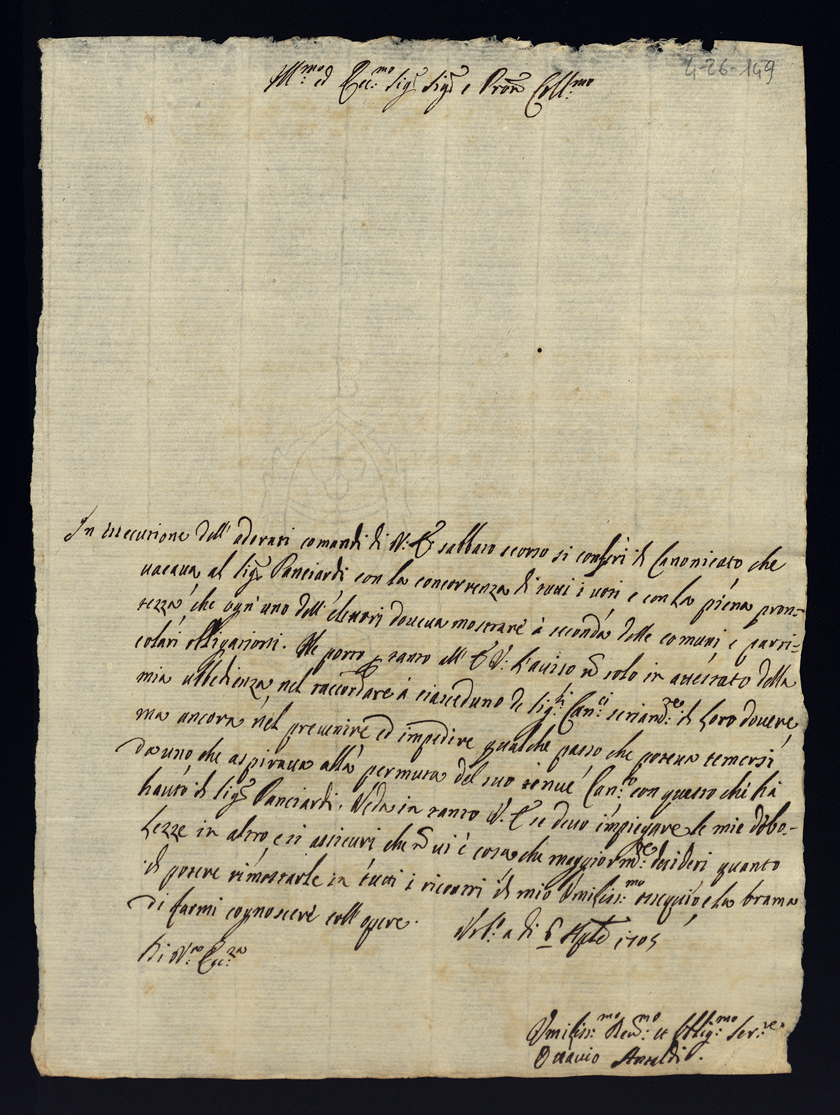 4-26-149
Ill:mo ed Ecc:mo Sig:r Sig:r e Pron Coll:mo
In essecutione dell' adorati comandi di V: E: sabbato scorso si conferì il Canonicato che
vacava al Sig:r Panciardi con la concorrenza di tutti i voti e con la piena pron-
tezza che ogn' uno dell' elettori doueua mostrare à seconda delle comuni e parti-
colari obligationi. Ne porto per tanto all' E V: l'auiso nõ solo in attestato della
mia ubbidienza nel raccordare à ciasceduno de sig:ri Can:ci il Loro douere
ma ancora nel preuenire ed impedire qualche passo che poteua temersi
da uno che aspiraua alla permuta del suo tenue Can:to con questo chi hà
hauto il sig:r Panciardi. Veda in tanto V: E se deuo impiegare le mie debo-
lezze in altro e si assicuri che nõ ui è cosa che maggiorm:te desideri quanto
di potere rimostrarle in tutti i ricontri il mio Vmiliss:mo ossequio e la brama
di farmi cognoscere coll' opere. a di 6 1705
Di V:ra Ecc:za
Vmiliss:mo Deu:mo et Oblig:mo Ser:re
Ottauio Ansaldi.